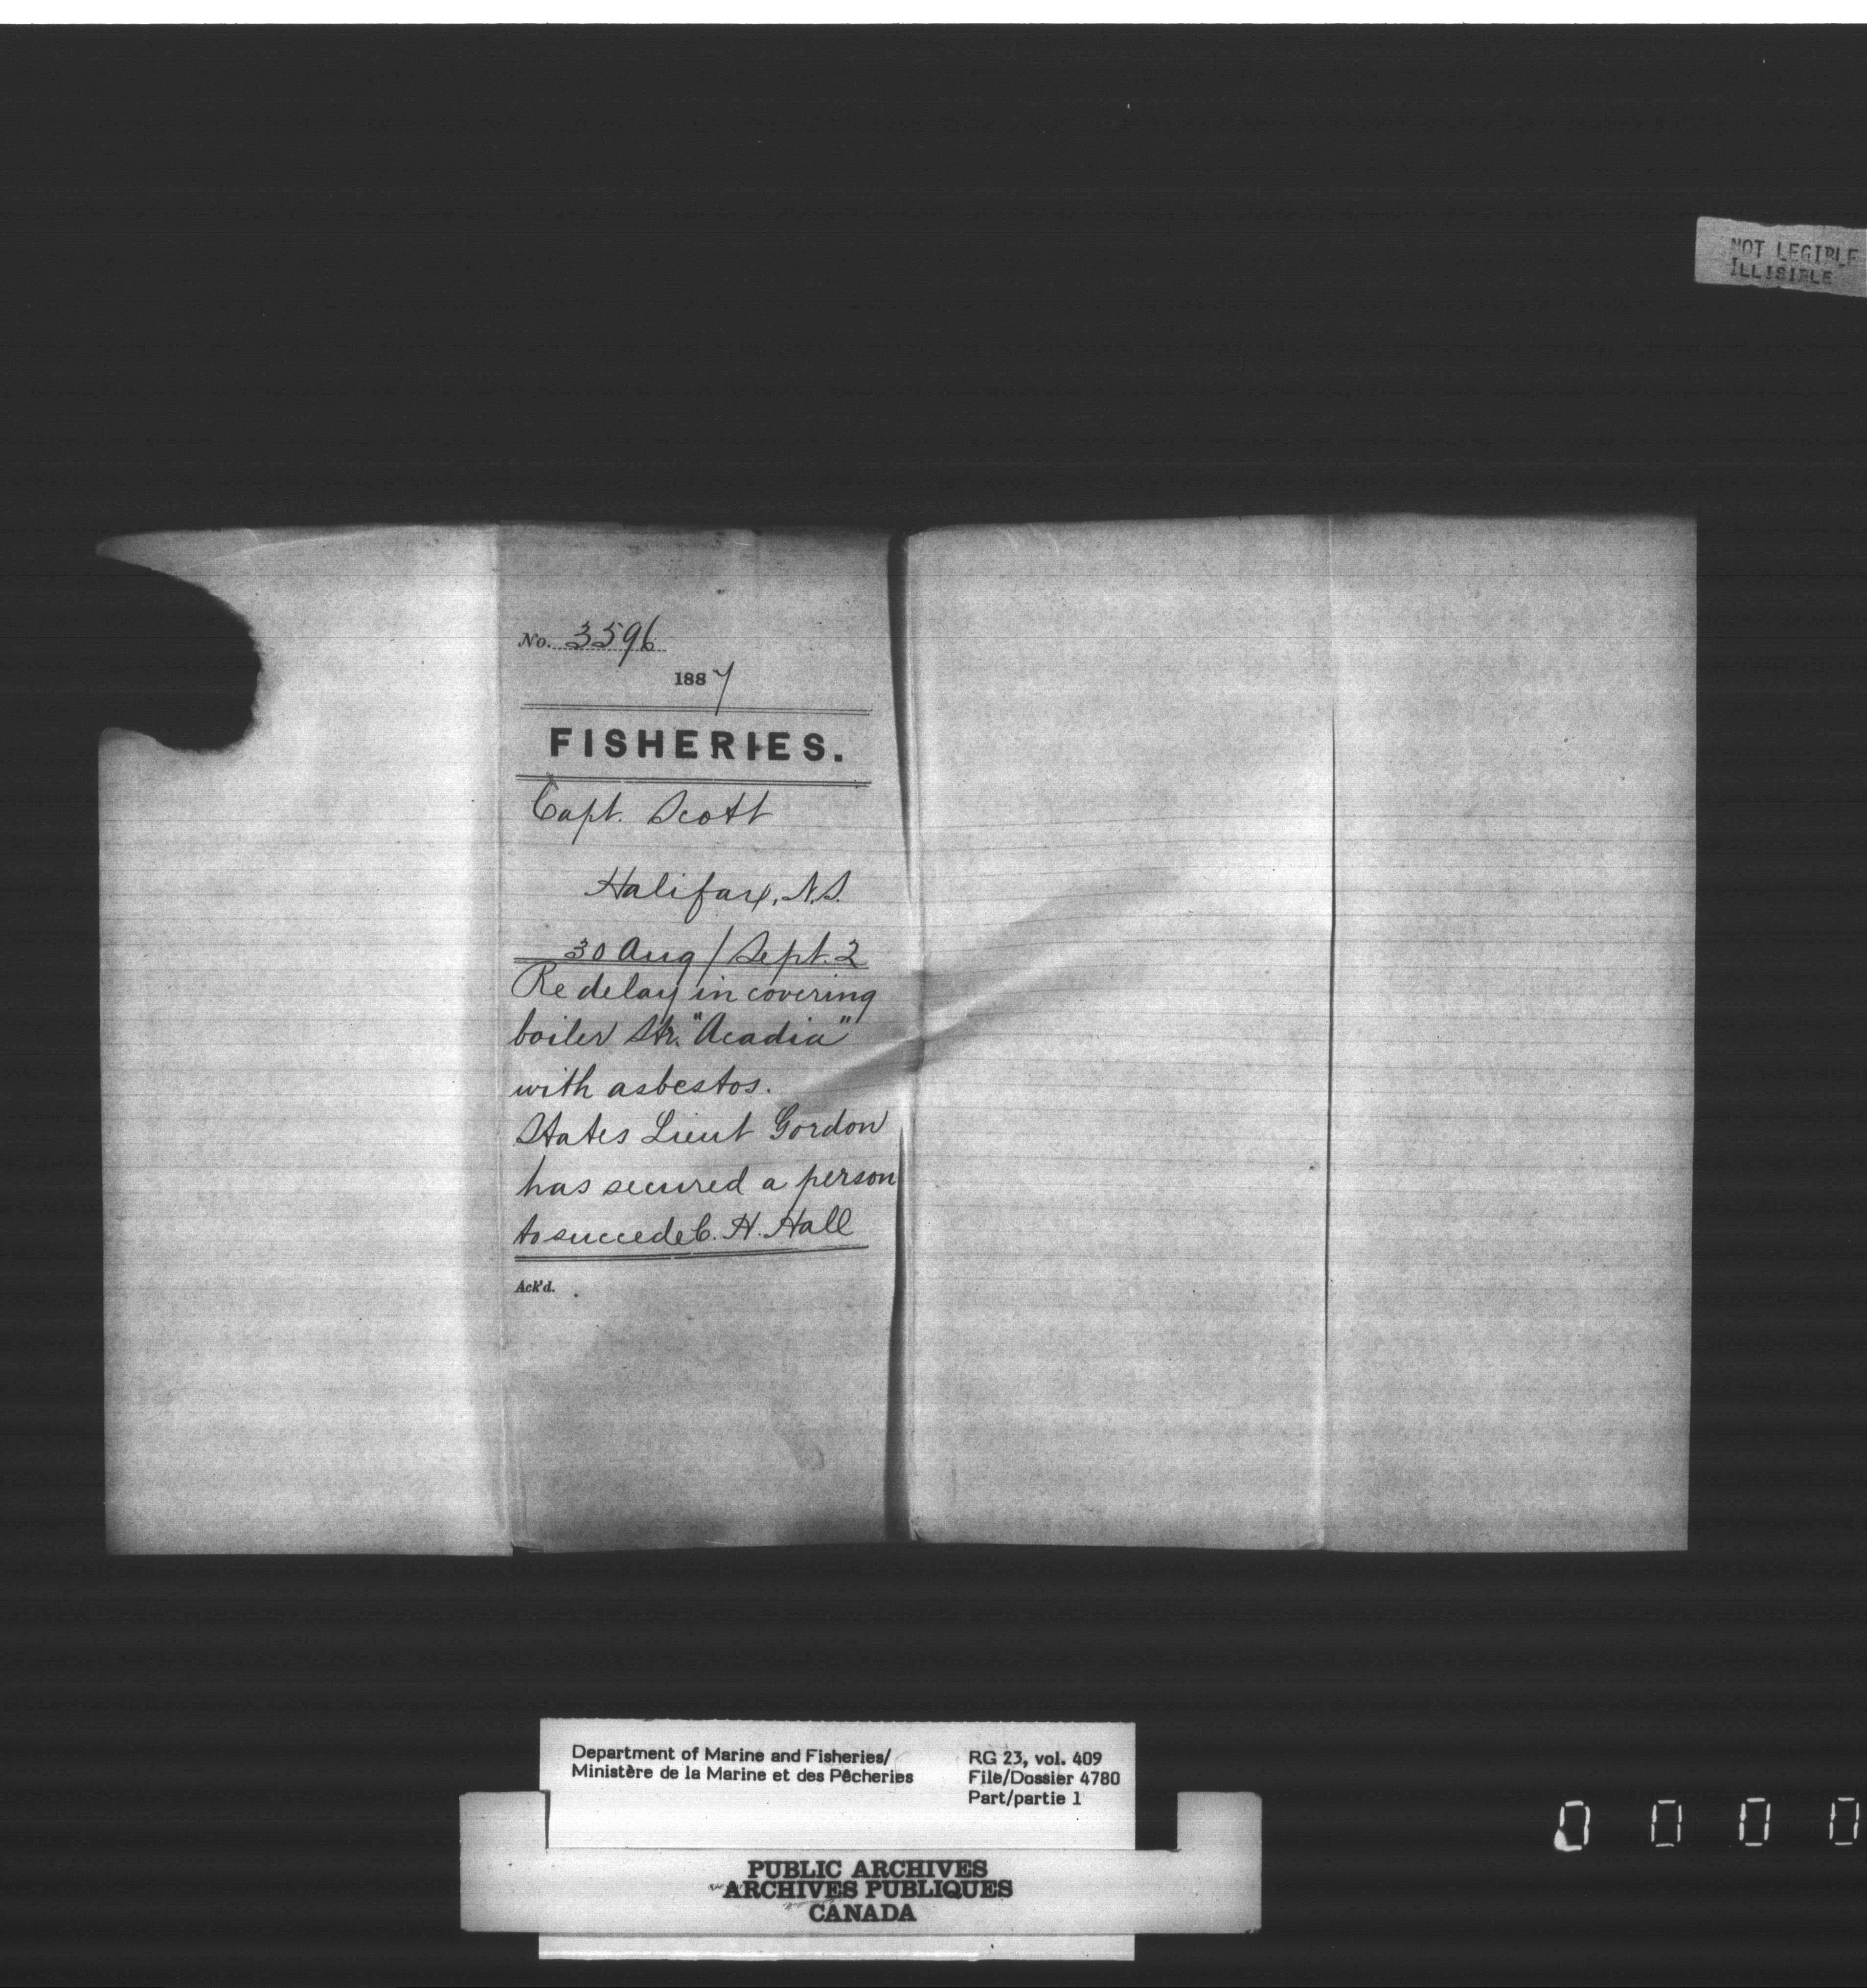 NOT LEGIBLE
ILLISIBLE
No. 3596
1887
FISHERIES.
Capt. Scott
Halifax, N.S.
30 Aug / Sept. 2
Re delay in covering
boiler Str. "Acadia"
with asbestos.
States Lieut Gordon
has secured a person
to succede C. H. Hall
Ack'd.
Department of Marine and Fisheries/
Ministère de la Marine et des Pêcheries
RG 23, vol. 409
File/Dossier 4780
Part/partie 1
PUBLIC ARCHIVES
ARCHIVES PUBLIQUES
CANADA
0 0 0 0